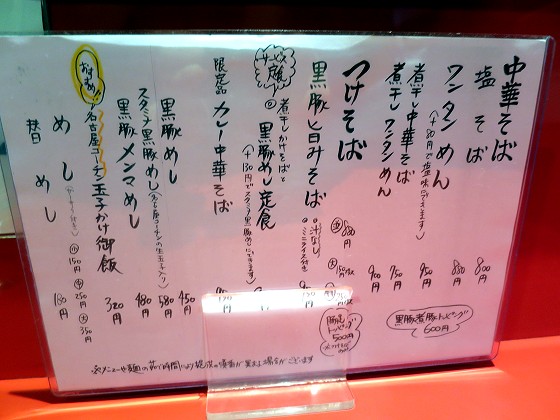 中華そば 800円
塩そば 880円
ワンタンめん 950円
(+80円で塩味にできます)
煮干し中華そば 950円
煮干しワンタンめん 900円
つけそば
並 880円
大
黒豚旨みそば
・汁なし
・ミニライス付き
サービス定食
煮干しかけそばと
黒豚めし定食
(+130円でスタミナ黒豚めしにできます)
限定品 カレー中華そば
黒豚めし 450円
スタミナ黒豚めし(名古屋コーチンの生玉子入り) 580円
黒豚メンマめし 480円
おすすめ!!
名古屋コーチン玉子かけ御飯 320円
めし
小150円 中250円 大350円
替めし 180円
黒豚煮豚トッピング
600円
トッピング
500円
※メニューや麺の茹で時間により提供の順番が異なる場合がございます